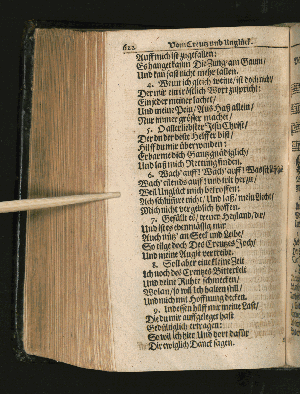 622 Vom Creutz und Unglück.
Auff mich ist zugefallen:
Es hanget kaum Die Zung am Gaum/
Und kan fast nicht mehr lallen.
4. Wenn ich gleich weine/ ist doch
Der mir ein tröstlich Wort zuspricht:
Ein jeder meiner lachet/
Und meine Pein/ Aus Haß allein/
Nur immer grösser machet/
5. O allerliebster Jesu Christ/
Der du der beste Helffer bist/
Hilff du mir überwinden:
Erbarme dich Gantz gnädiglich/
Und laß mich Rettung finden.
6. Wach' auff! Wach' auff!
Wach' eilends auff! und
Weil Unglück mich betroffen:
Ach schlum̃re nicht/ Und laß/ mein Liecht/
Mich nicht vergeblich hoffen.
7. Gefällt es/ treuer Heyland/ dir/
Und ist es ebenmässig mir
Auch nütz' an Seel und Leibe/
So lege doch Des Creutzes Joch/
Und meine Angst
8. Soll aber eine kleine Zeit
Ich noch des Creutzes Bitterkeit
Und deine Ruhte schmecken/
Wolan/ so wil ich halten still/
Und mich mit Hoffnung decken.
9. Indessen hilff mir meine Last/
Die du mir auffgeleget hast
Gedültiglich ertragen:
So wil ich hier Und dort dafür
Dir ewiglich Danck sagen.